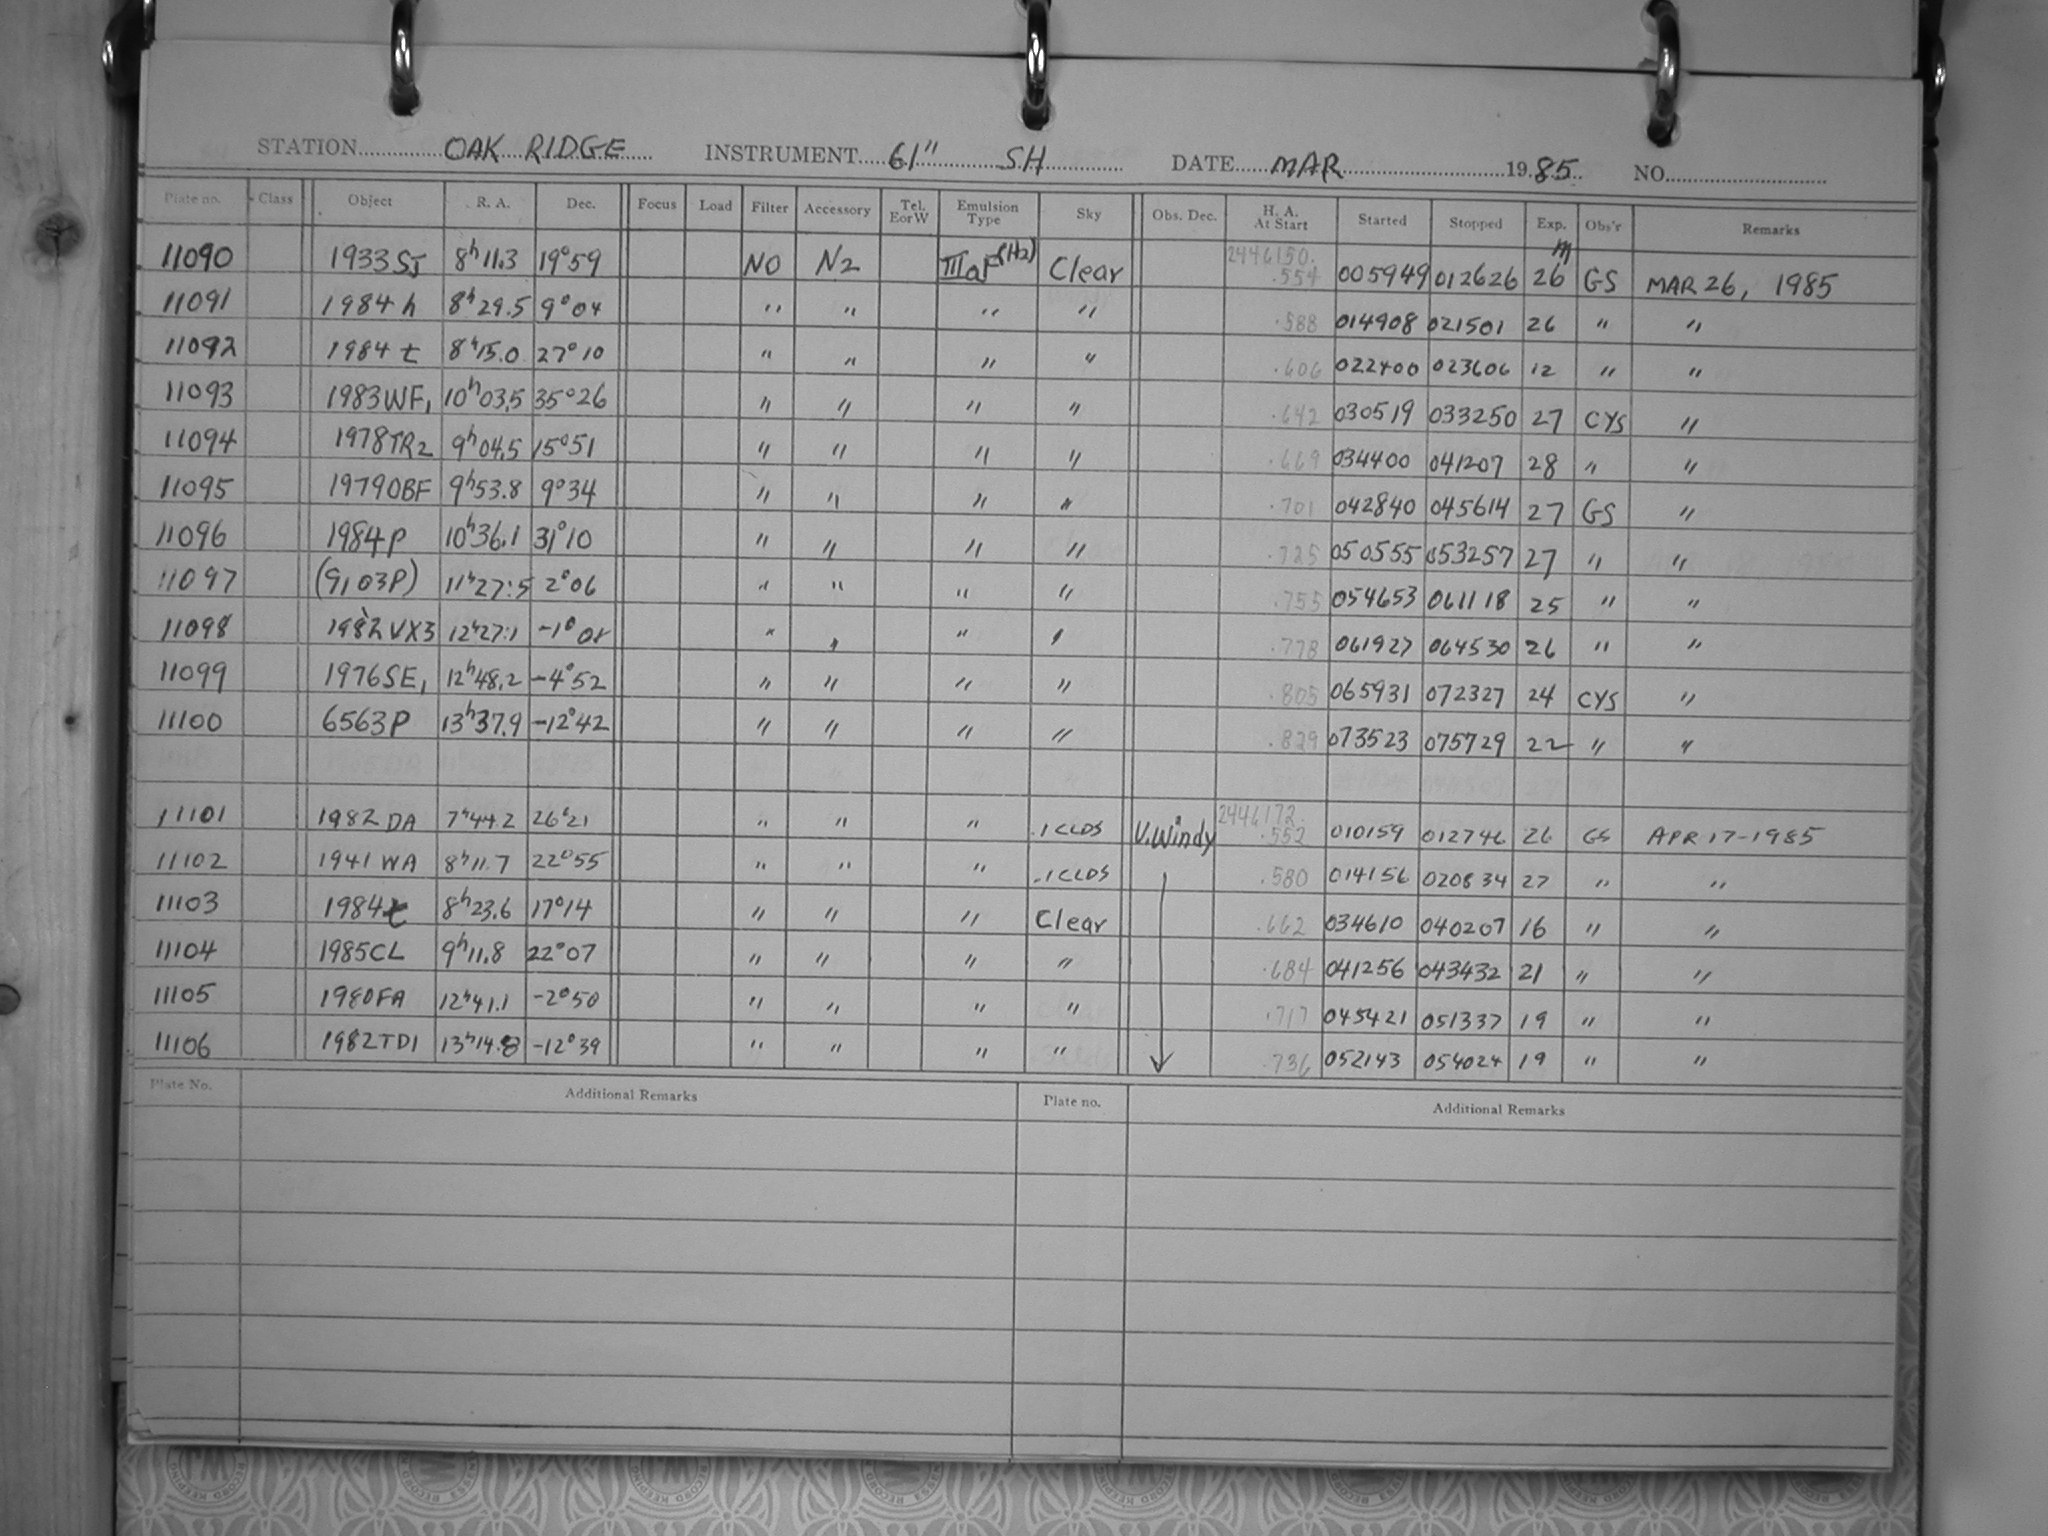 STATION OAK RIDGE INSTRUMENT 61" SH DATE MAR 1985 NO.
Plate no. Class Object R. A. Dec. Focus Load Filter Accessory Tel. EorW Emulsion Type Sky Obs. Dec. H. A. At Start Started Stopped Exp. Obs'r Remarks
11090 1933 SJ 8h 11.3 19°59 NO N2 IIIaF(H2) Clear 2446150. .554 005949 012626 26m GS MAR 26, 1985
11091 1984 h 8h 29.5 9°04 " " " " .588 014908 021501 26 " "
11092 1984 t 8h 15.0 27°10 " " " " .606 022400 023606 12 " "
11093 1983WF1 10h 03.5 35°26 " " " " .642 030519 033250 27 CYS "
11094 1978TR2 9h 04.5 15°51 " " " " .669 034400 041207 28 " "
11095 1979OBF 9h 53.8 9°34 " " " " .701 042840 045614 27 GS "
11096 1984P 10h 36.1 31°10 " " " " .725 050555 053257 27 " "
11097 (9103P) 11h 27.5 2°06 " " " " .755 054653 061118 25 " "
11098 1982 VX3 12h 27.1 " " " " .778 061927 064530 26 " "
11099 1976SE1 12h 48.2 -4°52 " " " " .805 065931 072327 24 CYS "
11100 6563P 13h 37.9 -12°42 " " " " .829 073523 075729 22 " "
11101 1982 DA 7h 44.2 26°21 " " " .1 CLDS V.Windy 2446172. .552 010159 012746 26 GS APR 17-1985
11102 1941 WA 8h 11.7 22°55 " " " .1 CLDS .580 014156 020834 27 " "
11103 1984t 8h 23.6 17°14 " " " Clear .662 034610 040207 16 " "
11104 1985CL 9h 11.8 22°07 " " " " .684 041256 043432 21 " "
11105 1980FA 12h 41.1 -2°50 " " " " .717 045421 051337 19 " "
11106 1982TD1 13h 14.8 -12°39 " " " " .736 052143 054024 19 " "
Plate No. Additional Remarks Plate no. Additional Remarks